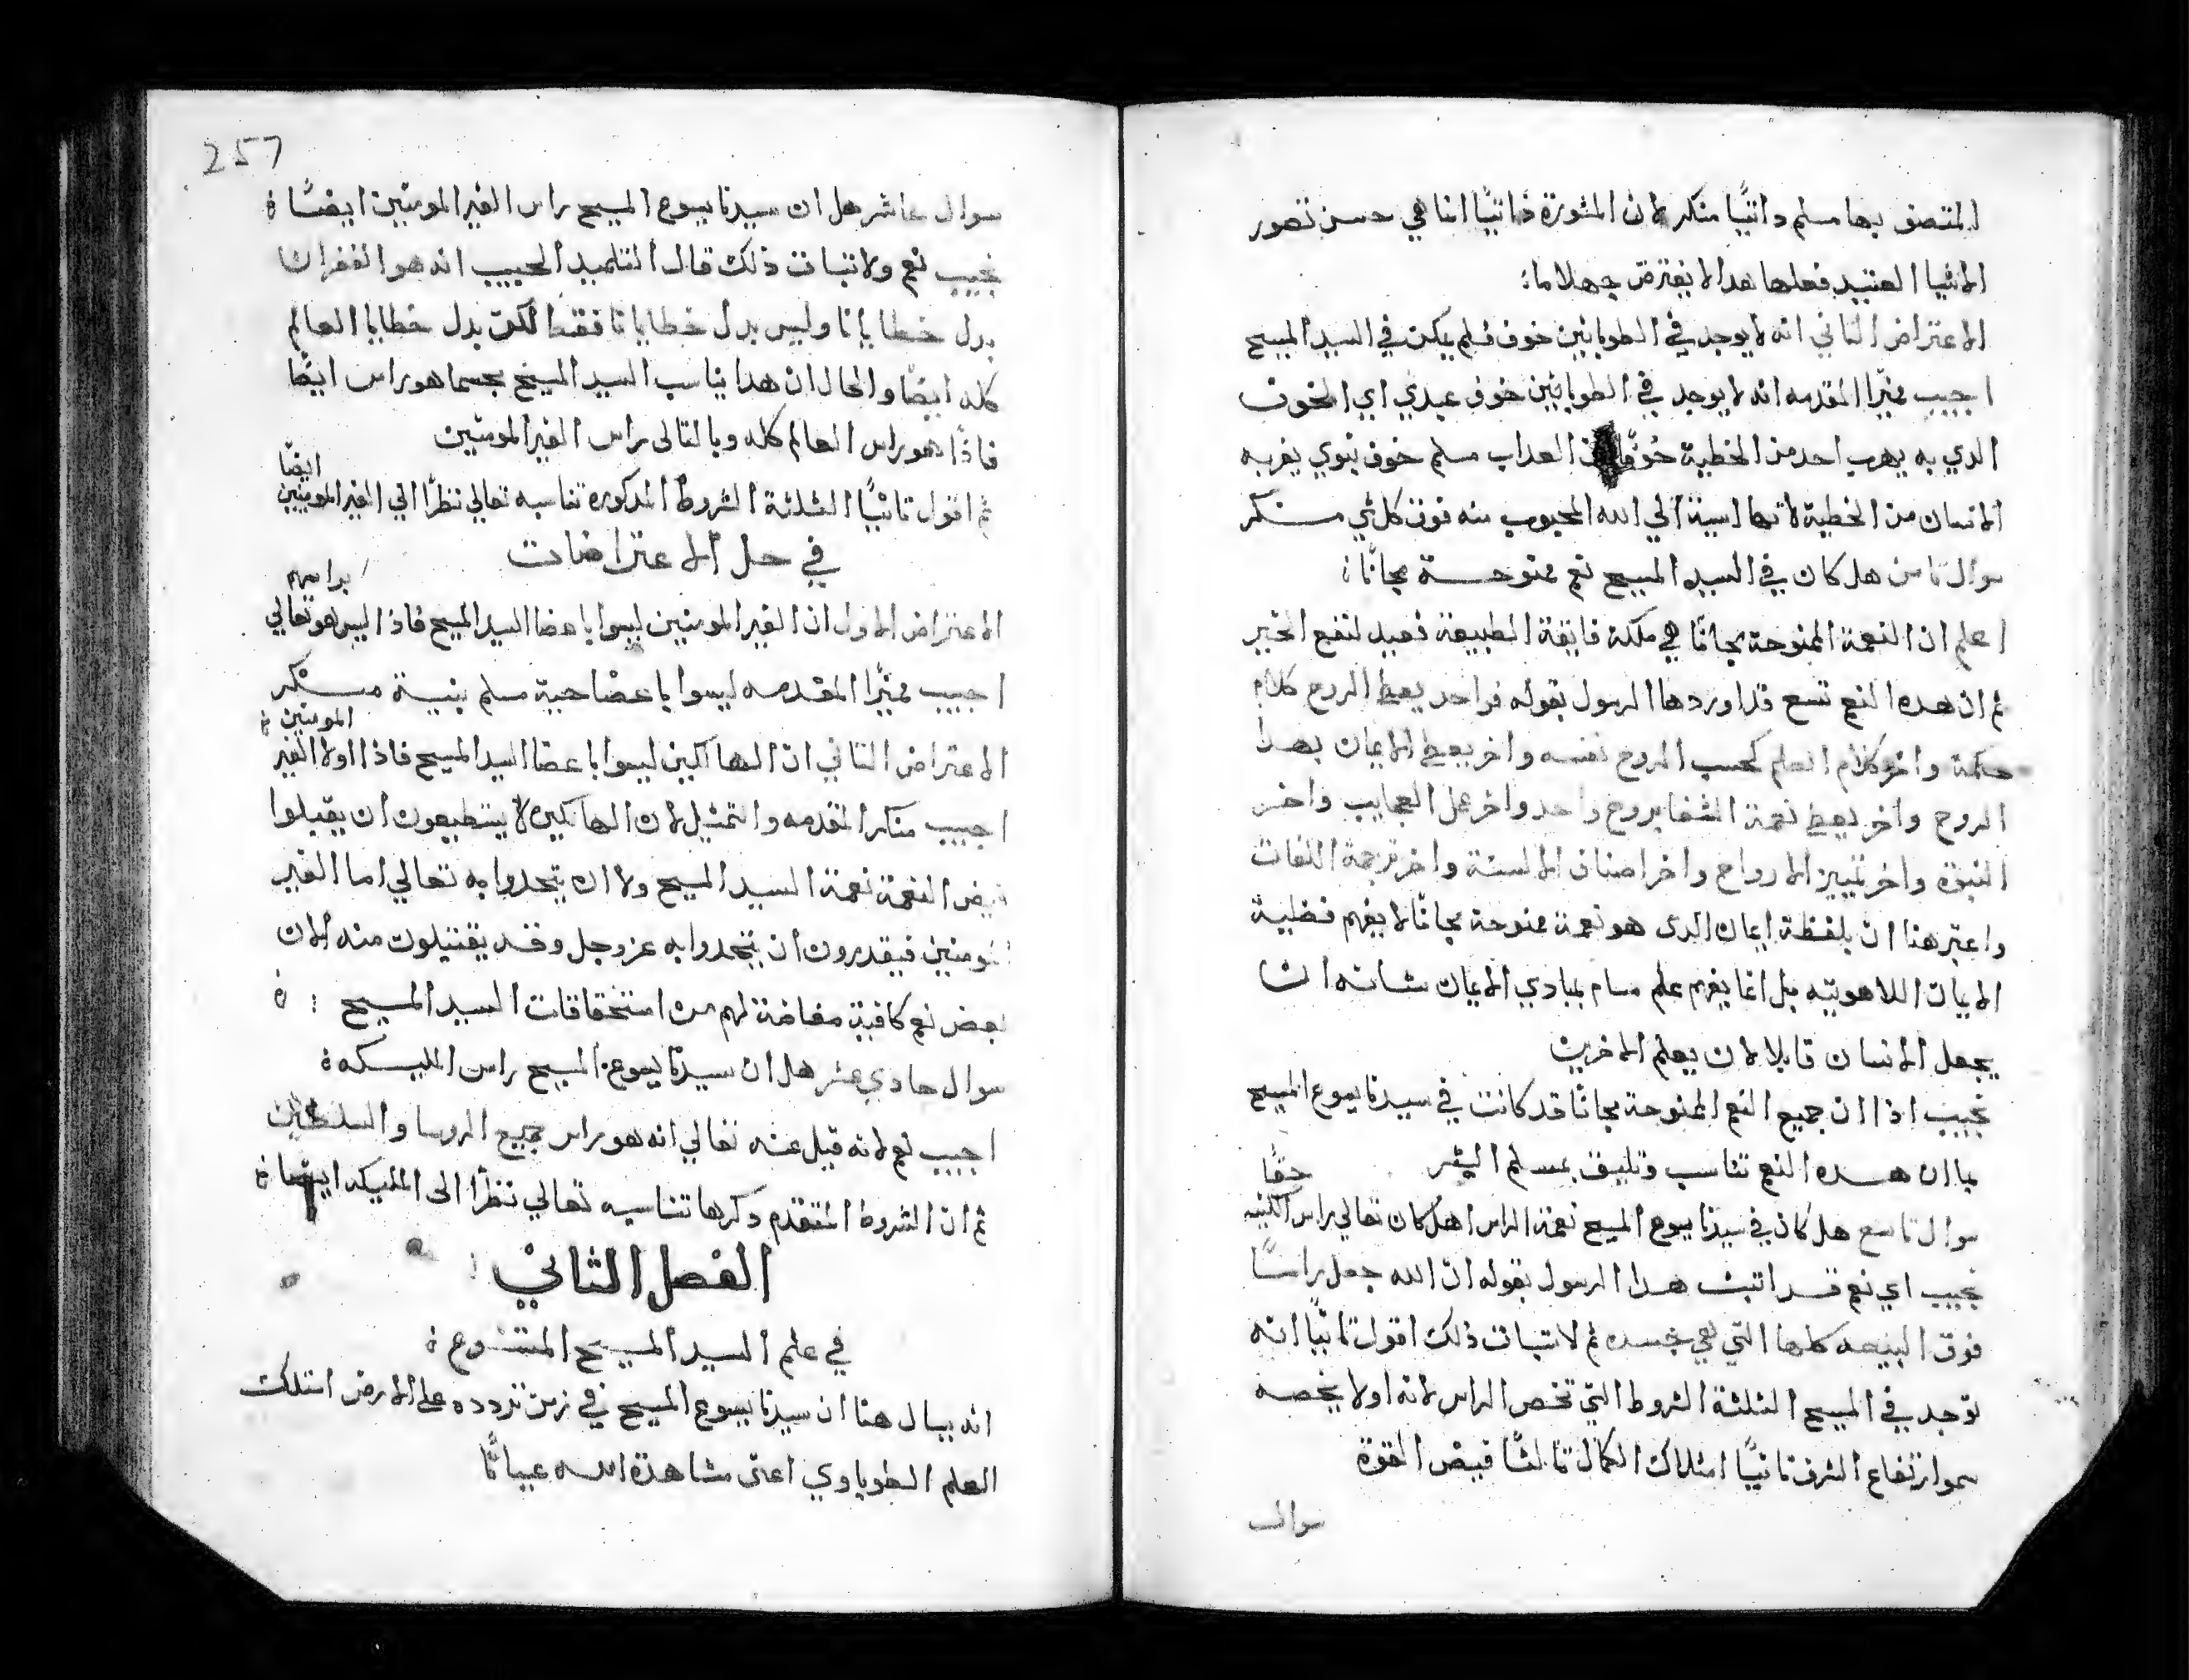 المتصف بها مسلم داتيًا منكر لان المشورة داتيًا انما هي حسن تصور
الاشيا العتيد فعلها هدا لا يفترض جهلا ما:
الاعتراض الثاني انه لا يوجد في الطوبانيين خوف فلم يكن في السيد المسيح
اجيب مميزًا المقدمه انه لا يوجد في الطوبانيين خوف عبدي اي الخوف
الدي به يهرب احد من الخطية خوفًا من العداب مسلم خوف بنوي يفر به
الانسان من الخطية لانها اسية الي الله المحبوب منه فوق كل شي منكر
سوال تامن هل كان في السيد المسيح نعم ممنوحة مجانًا:
اعلم ان النعمة الممنوحة مجانًا هي ملكة فايقة الطبيعة فعيد لنفع الغير
ثم ان هده النعم تسع قد اوردها الرسول بقوله فواحد يعط الروح كلام
حكمة واخر كلام العلم كحسب الروح نفسه واخر يعط الايمان بهدا
الروح واخر يعط نعمة الشفا بروح واحد واخر عمل العجايب واخر
النبوة واخر تمييز الارواح واخر اصناف الالسنة واخر ترجمة اللغات
واعتبر هنا ان بلفظة ايمان الدى هو نعمة ممنوحة مجانًا لا يفهم فضيلة
الايمان اللاهوتيه بل انما يفهم علم سام بمبادي الايمان شانه ان
يجعل الانسان قابلا لان يعلم الاخرين
نجيب ادا ان جميع النعم الممنوحة مجانًا قد كانت في سيدنا يسوع المسيح
بما ان هده النعم تناسب وتليق بمسلم البشر
حقًا
سوال تاسع هل كان في سيدنا يسوع المسيح نعمة الراس اهل كان تعالي راس الكنيسه
نجيب اي نعم قد اتبت هدا الرسول بقوله ان الله جعل راسًا
فوق البيعه كلها التي هي جسده ثم لاتبات ذلك اقول تانيًا انه
توجد في المسيح التلتة الشروط التي تخص الراس لانه اولا يخصه
سمو ارتفاع الشرف تانيًا امتلاك الكمال تالتًا فيض القوة
سوال
257
سوال عاشر هل ان سيدنا يسوع المسيح راس الغير المومنين ايضًا
نجيب نعم ولاتبات ذلك قال التلميد الحبيب انه هو الغفران
بدل خطايانا وليس بدل خطايانا فقط لكن بدل خطايا العالم
كله ايضًا والحال ان هدا يناسب السيد المسيح بحسبما هو راس ايضًا
فاذًا هو راس العالم كله وبالتالى راس الغير المومنين
ايضًا
ثم اقول تانيًا الثلثة الشروط المدكوره تناسبه تعالي نظرًا الي الغير المومنين
في حل الاعتراضات
براسهم
الاعتراض الاول ان الغير المومنين ليسوا باعضا السيد المسيح فاذا ليس هو تعالي
اجيب مميزًا المقدمه ليسوا باعضا حية مسلم بنية منكر
المومنين
الاعتراض التاني ان الهالكين ليسوا باعضا السيد المسيح فاذا اولا الغير
اجيب منكرا المقدمه والتمثيل لان الهالكين لا يستطيعون ان يقبلوا
فيض النعمة نعمة السيد المسيح ولا ان يتحدوا به تعالي اما الغير
المومنين فيقدرون ان يتحدوا به عز وجل وقد يقتبلون منه الان
بعض نعم كافية مفاضة لهم من استحقاقات السيد المسيح :
سوال حادي عشر هل ان سيدنا يسوع المسيح راس المليكه
اجيب نعم لانه قيل عنه تعالي انه هو راس جميع الروسا والسلاطين
ثم ان الشروط المتقدم دكرها تناسبه تعالي نظرًا الى المليكه ايضًا
الفصل الثاني
في علم السيد المسيح المتنوع
انه يسال هنا ان سيدنا يسوع المسيح في زمن تردده على الارض امتلك
العلم الطوباوي اعنى مشاهدة الله عيانًا